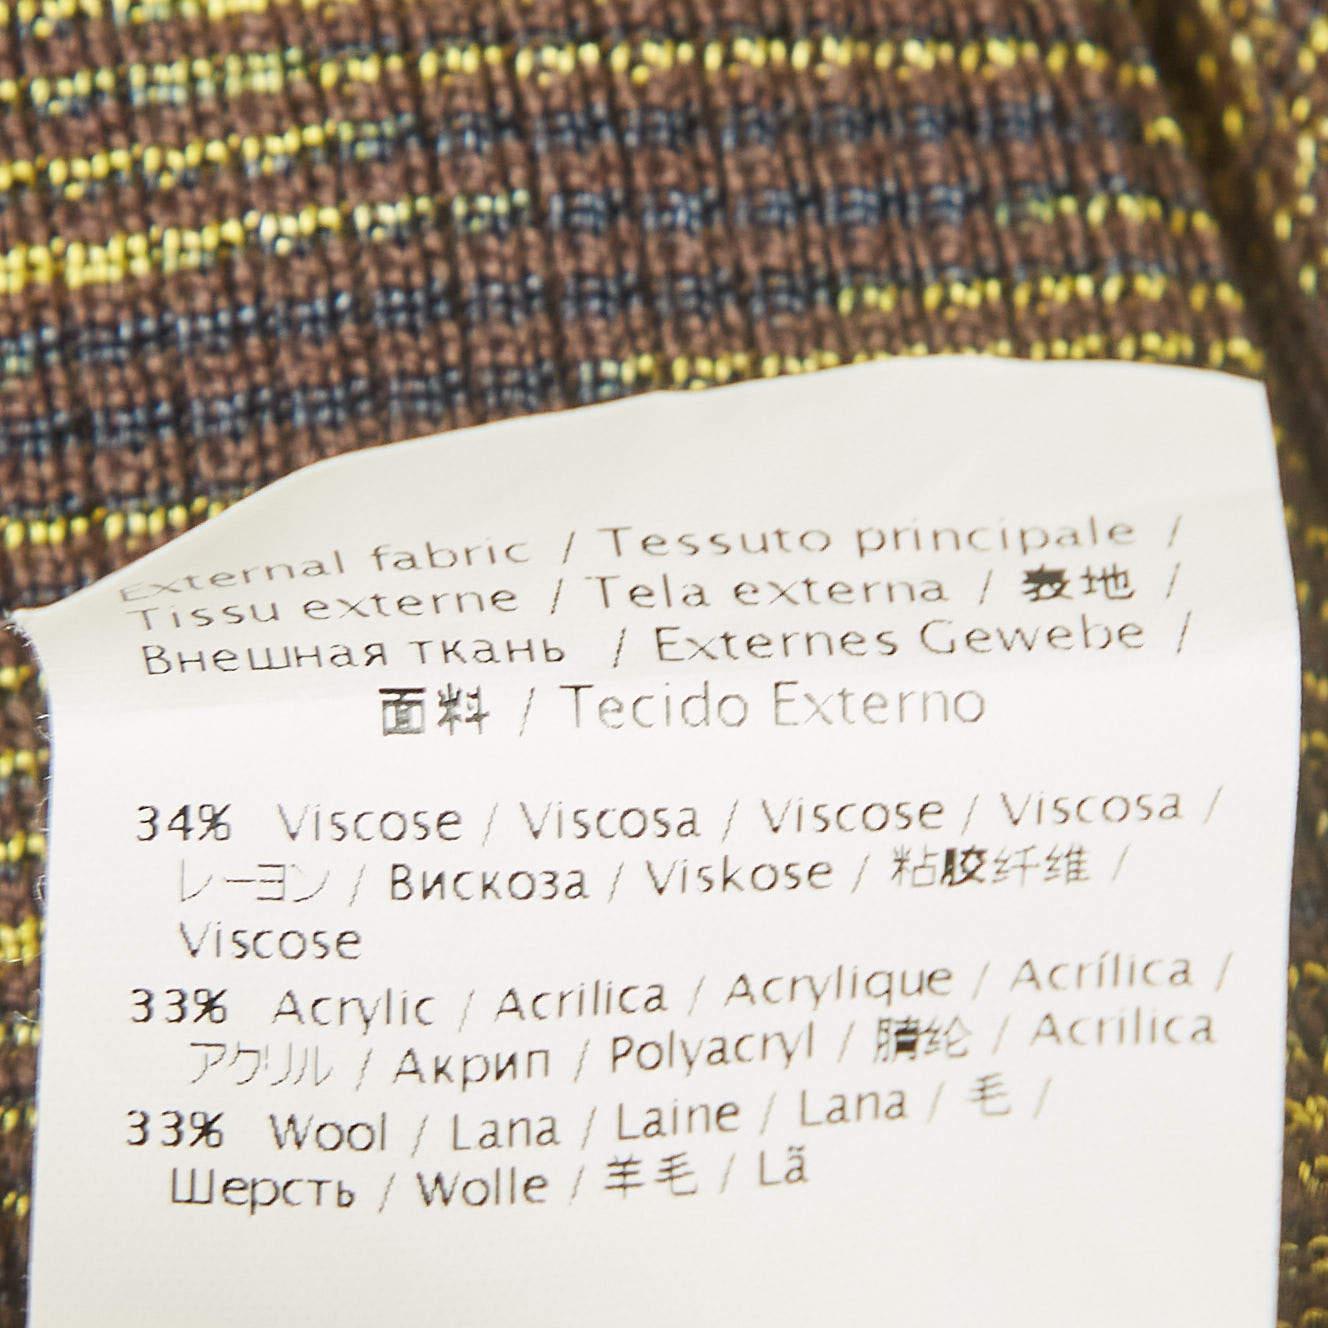 External fabric / Tessuto principale /
Tissu externe / Tela externa / 表地 /
Внешная ткань / Externes Gewebe /
面料 / Tecido Externo
34% Viscose / Viscosa / Viscose / Viscosa /
レーヨン / Вискоза / Viskose / 粘胶纤维 /
Viscose
33% Acrylic / Acrilica / Acrylique / Acrílica /
アクリル / Акрил / Polyacryl / 腈纶 / Acrílica
33% Wool / Lana / Laine / Lana / 毛 /
Шерсть / Wolle / 羊毛 / Lã